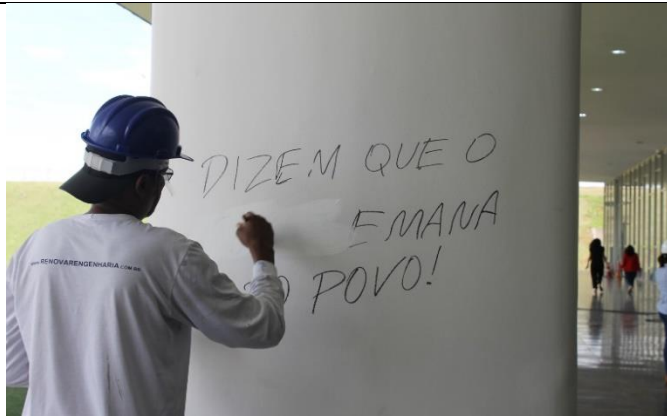 DIZEM QUE O
EMANA
POVO!
www.RENOVARENGENHARIA.COM.BR